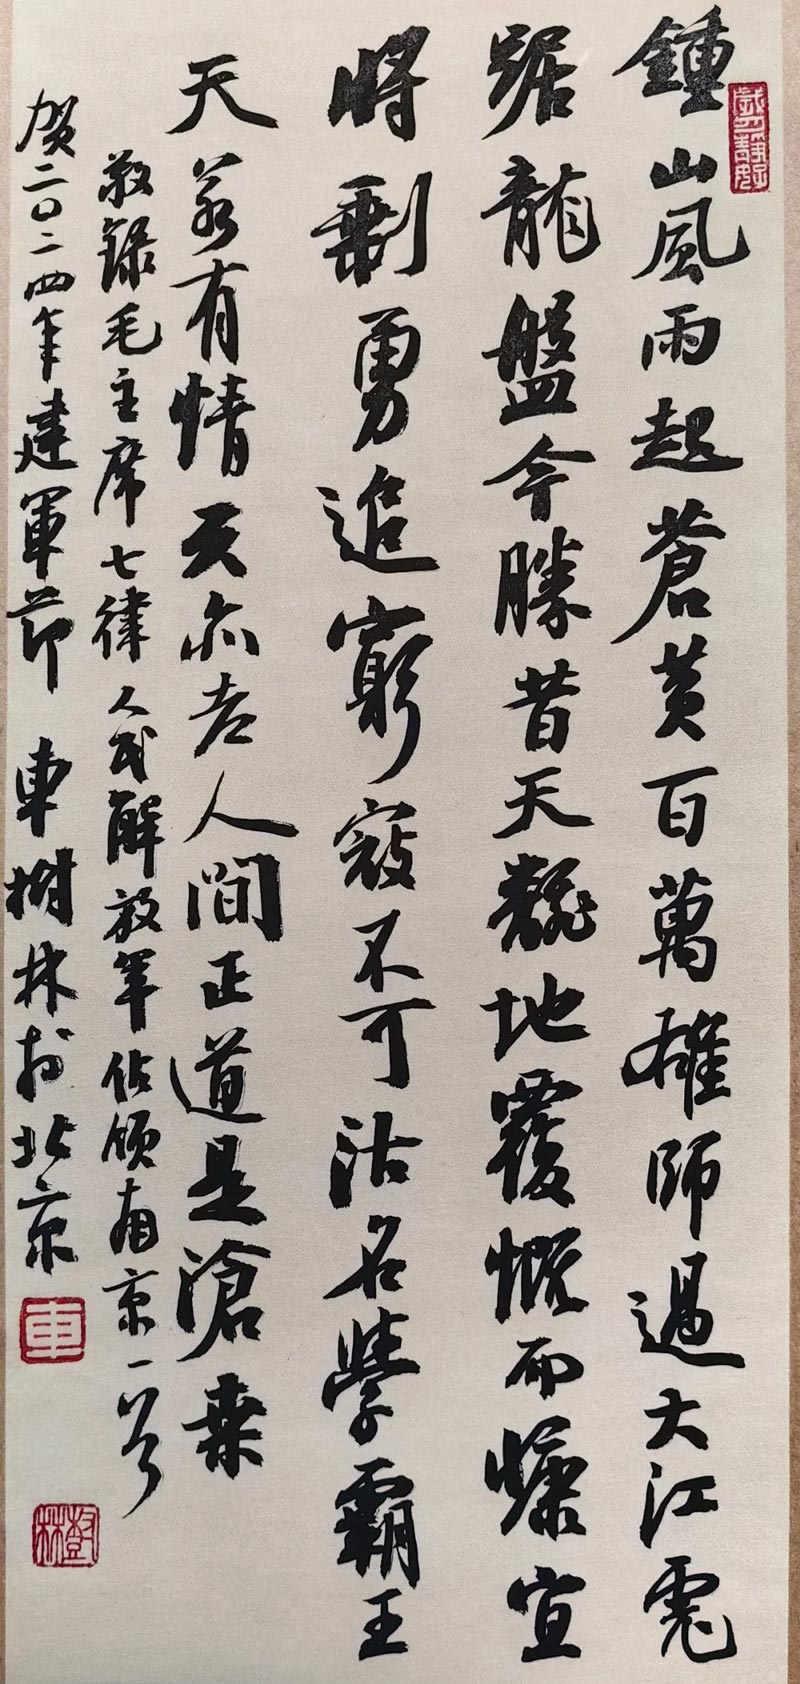 鍾山風雨起蒼黄百萬雄師過大江虎
踞龍盤今勝昔天翻地覆慨而慷宜
將剩勇追窮寇不可沽名學霸王
天若有情天亦老人間正道是滄桑
敬録毛主席七律人民解放軍佔領南京一首
贺二〇二四年建軍節 車樹林於北京
車
樹林